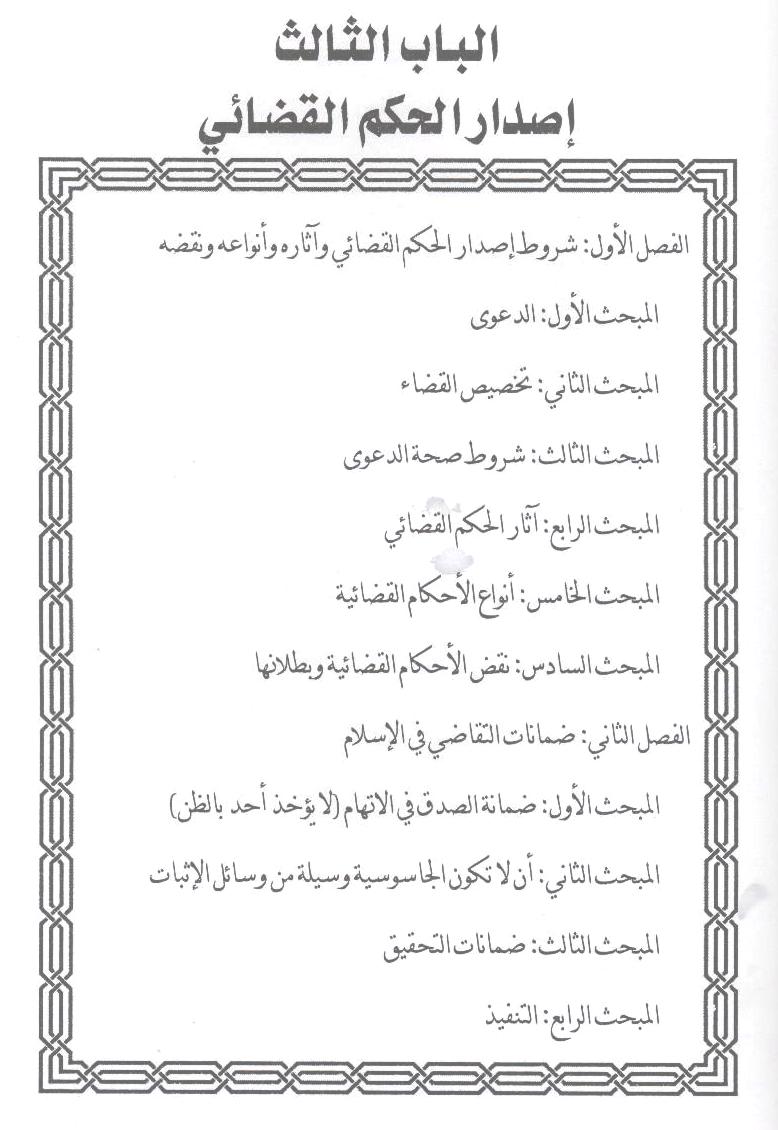 الباب الثالث
إصدار الحكم القضائي
الفصل الأول: شروط إصدار الحكم القضائي وآثاره وأنواعه ونقضه
المبحث الأول: الدعوى
المبحث الثاني: تخصيص القضاء
المبحث الثالث: شروط صحة الدعوى
المبحث الرابع: آثار الحكم القضائي
المبحث الخامس: أنواع الأحكام القضائية
المبحث السادس: نقض الأحكام القضائية وبطلانها
الفصل الثاني: ضمانات التقاضي في الإسلام
المبحث الأول: ضمانة الصدق في الاتهام (لا يؤخذ أحد بالظن)
المبحث الثاني: أن لا تكون الجاسوسية وسيلة من وسائل الإثبات
المبحث الثالث: ضمانات التحقيق
المبحث الرابع: التنفيذ